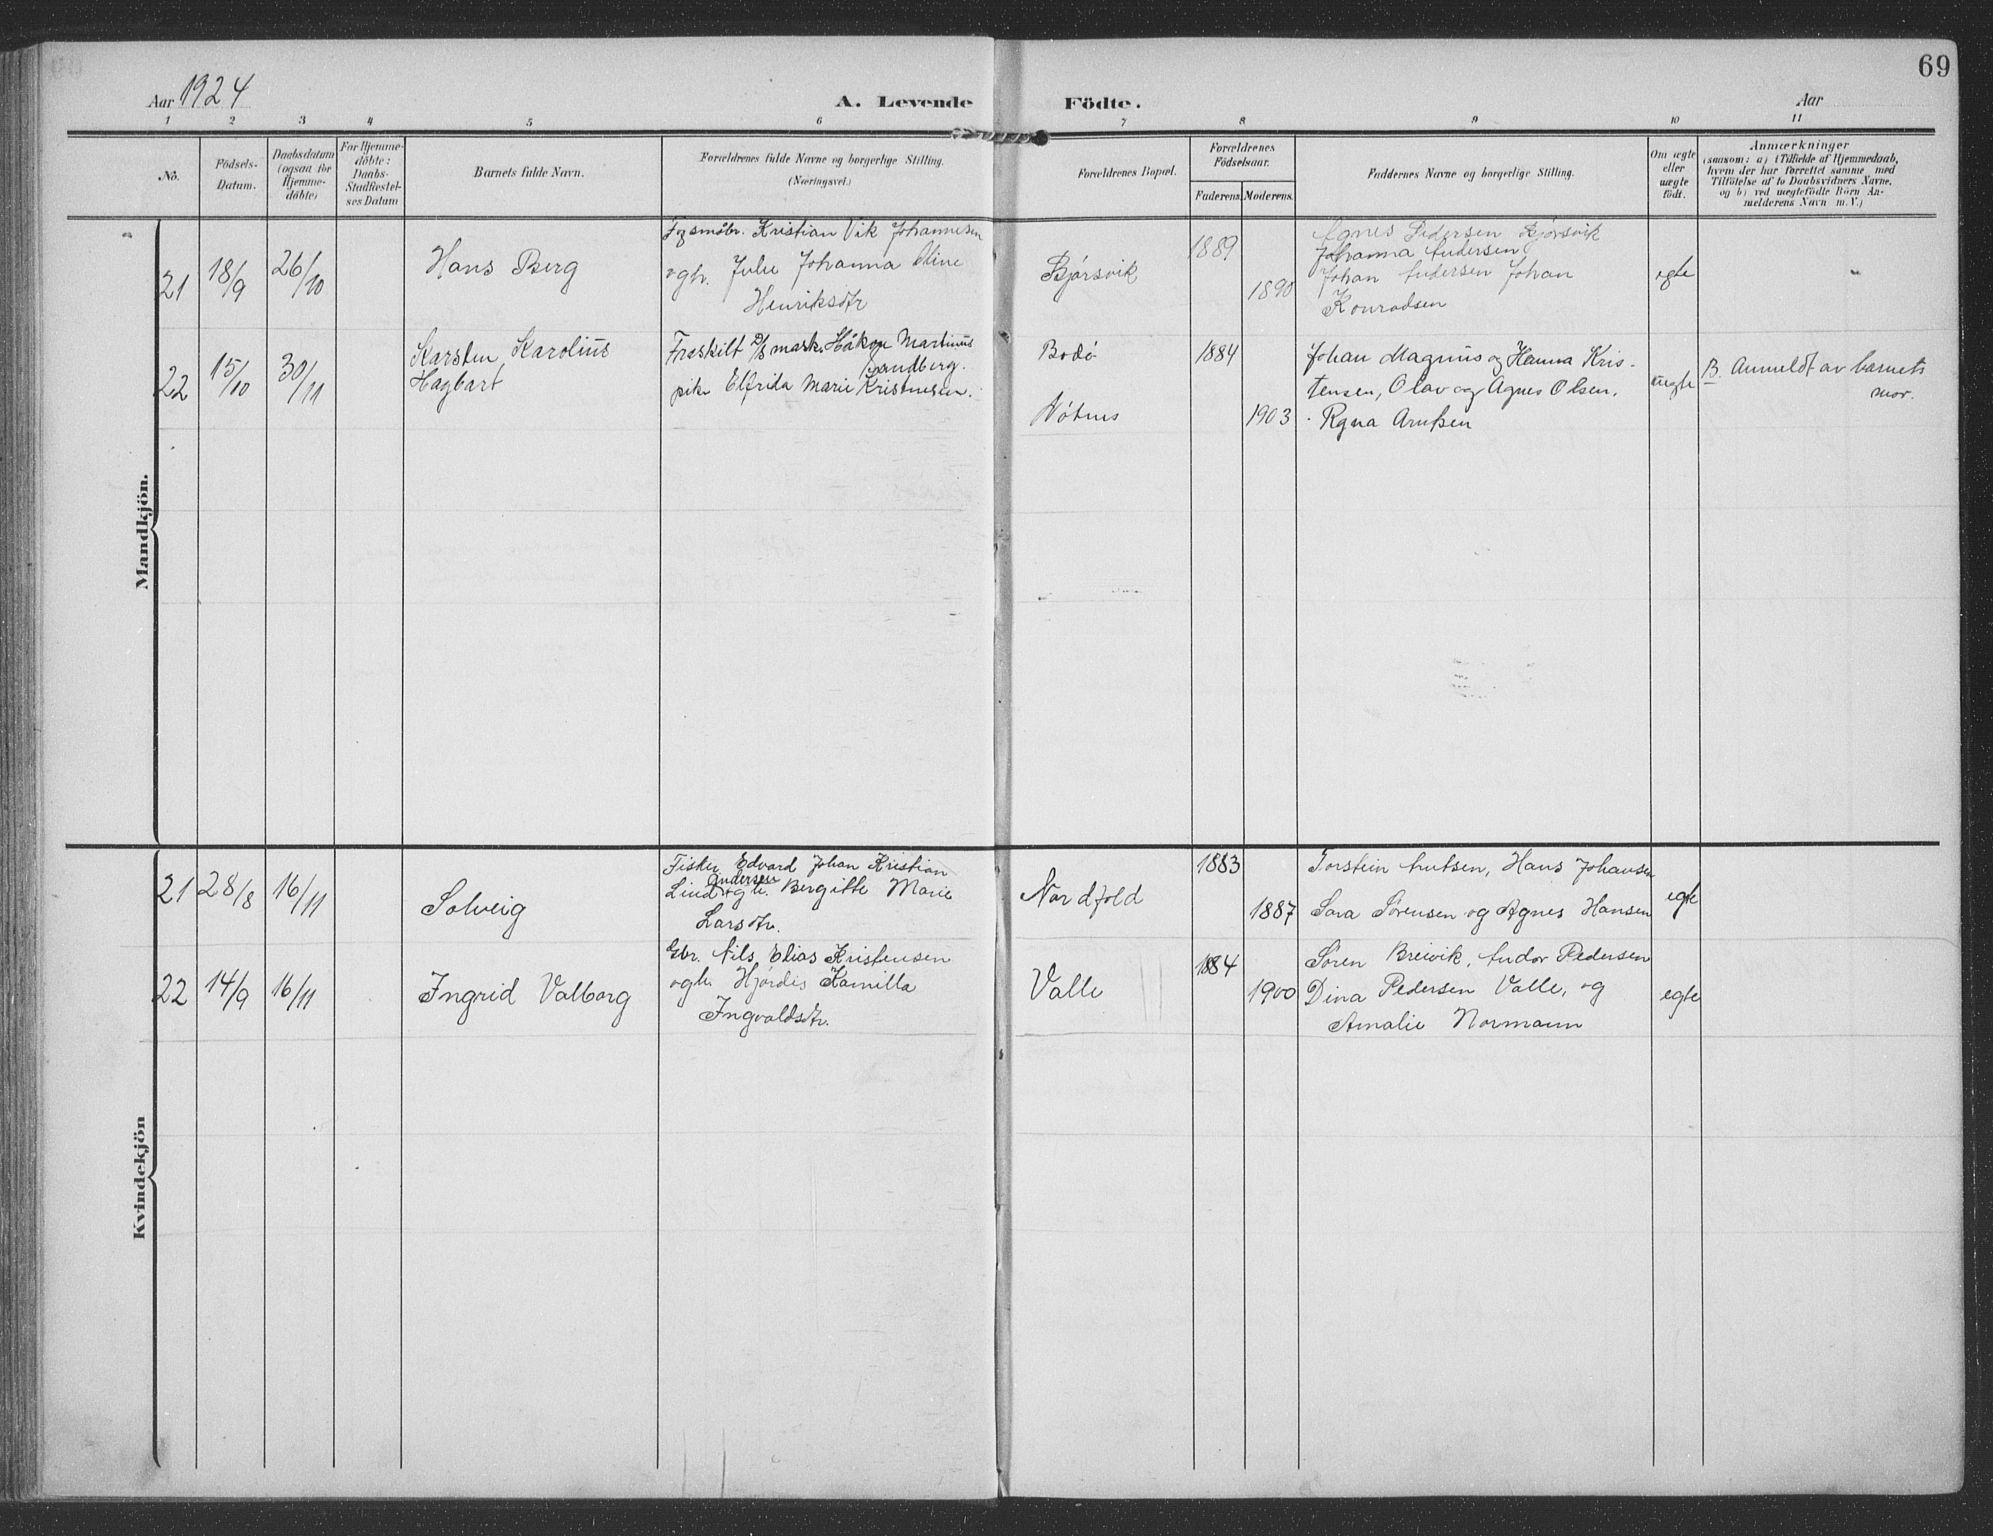 69
Aar 1924
A. Levende Födte.
Aar
1 2 3 4 5 6 7 8 9 10 11
No.
Födsels-
Datum.
Daabsdatum
(ogsaa for
Hjemme-
döbte)
For Hjemme-
döbte:
Daabs-
Stadfæstel-
ses Datum
Barnets fulde Navn.
Forældrenes fulde Navne og borgerlige Stilling.
(Næringsvei.)
Forældrenes Bopæl.
Forældrenes
Födselsaar.
Faderens. Moderens.
Faddernes Navne og borgerlige Stilling.
Om ægte
eller
uægte
födt.
Anmærkninger
(saasom: a) i Tilfælde af Hjemmedaab,
hvem der har forrettet samme med
Tilföielse af to Daabsvidners Navne,
og b) ved uægtefödte Börn An-
melderens Navn m. V.)
Mandkjön.
21
18/9
26/10
Hans Berg
Kristian Vik Johannesen
ogh. Julie Johanna Oline
Henriksdtr
Bjørsvik
1889
1890
Agnes Pedersen Bjørsvik
Johanna Andersen
Johan Andersen Johan
Konradsen
egte
22
15/10
30/11
Karsten Karolius
Hagbart
Fraskilt D/S mask. Håkon Martinus
Sandberg.
pike Elfrida Marie Kristensen.
Bodø
1884
1903
Johan Magnus og Hanna Kris-
tensen, Olav og Agnes Olsen.
Arntsen
uegte
B. Anmeldt av barnets
mor.
Kvindekjön
21
28/8
16/11
Solveig
Fisker Edvard Johan Kristian
Andersen
Lind ogh. Bergitte Marie
Larsdtr.
Nordfold
1883
1887
Torstein Arntsen, Hans Johansen
Sara Sørensen og Agnes Hansen
egte
22
14/9
16/11
Ingrid Valborg
Gbr. Nils Elias Kristensen
ogh. Hjørdis Kamilla
Ingvaldsdtr.
Valle
1884
1900
Søren Breivik, Andor Pedersen
Dina Pedersen Valle, og
Amalie Normann
egte